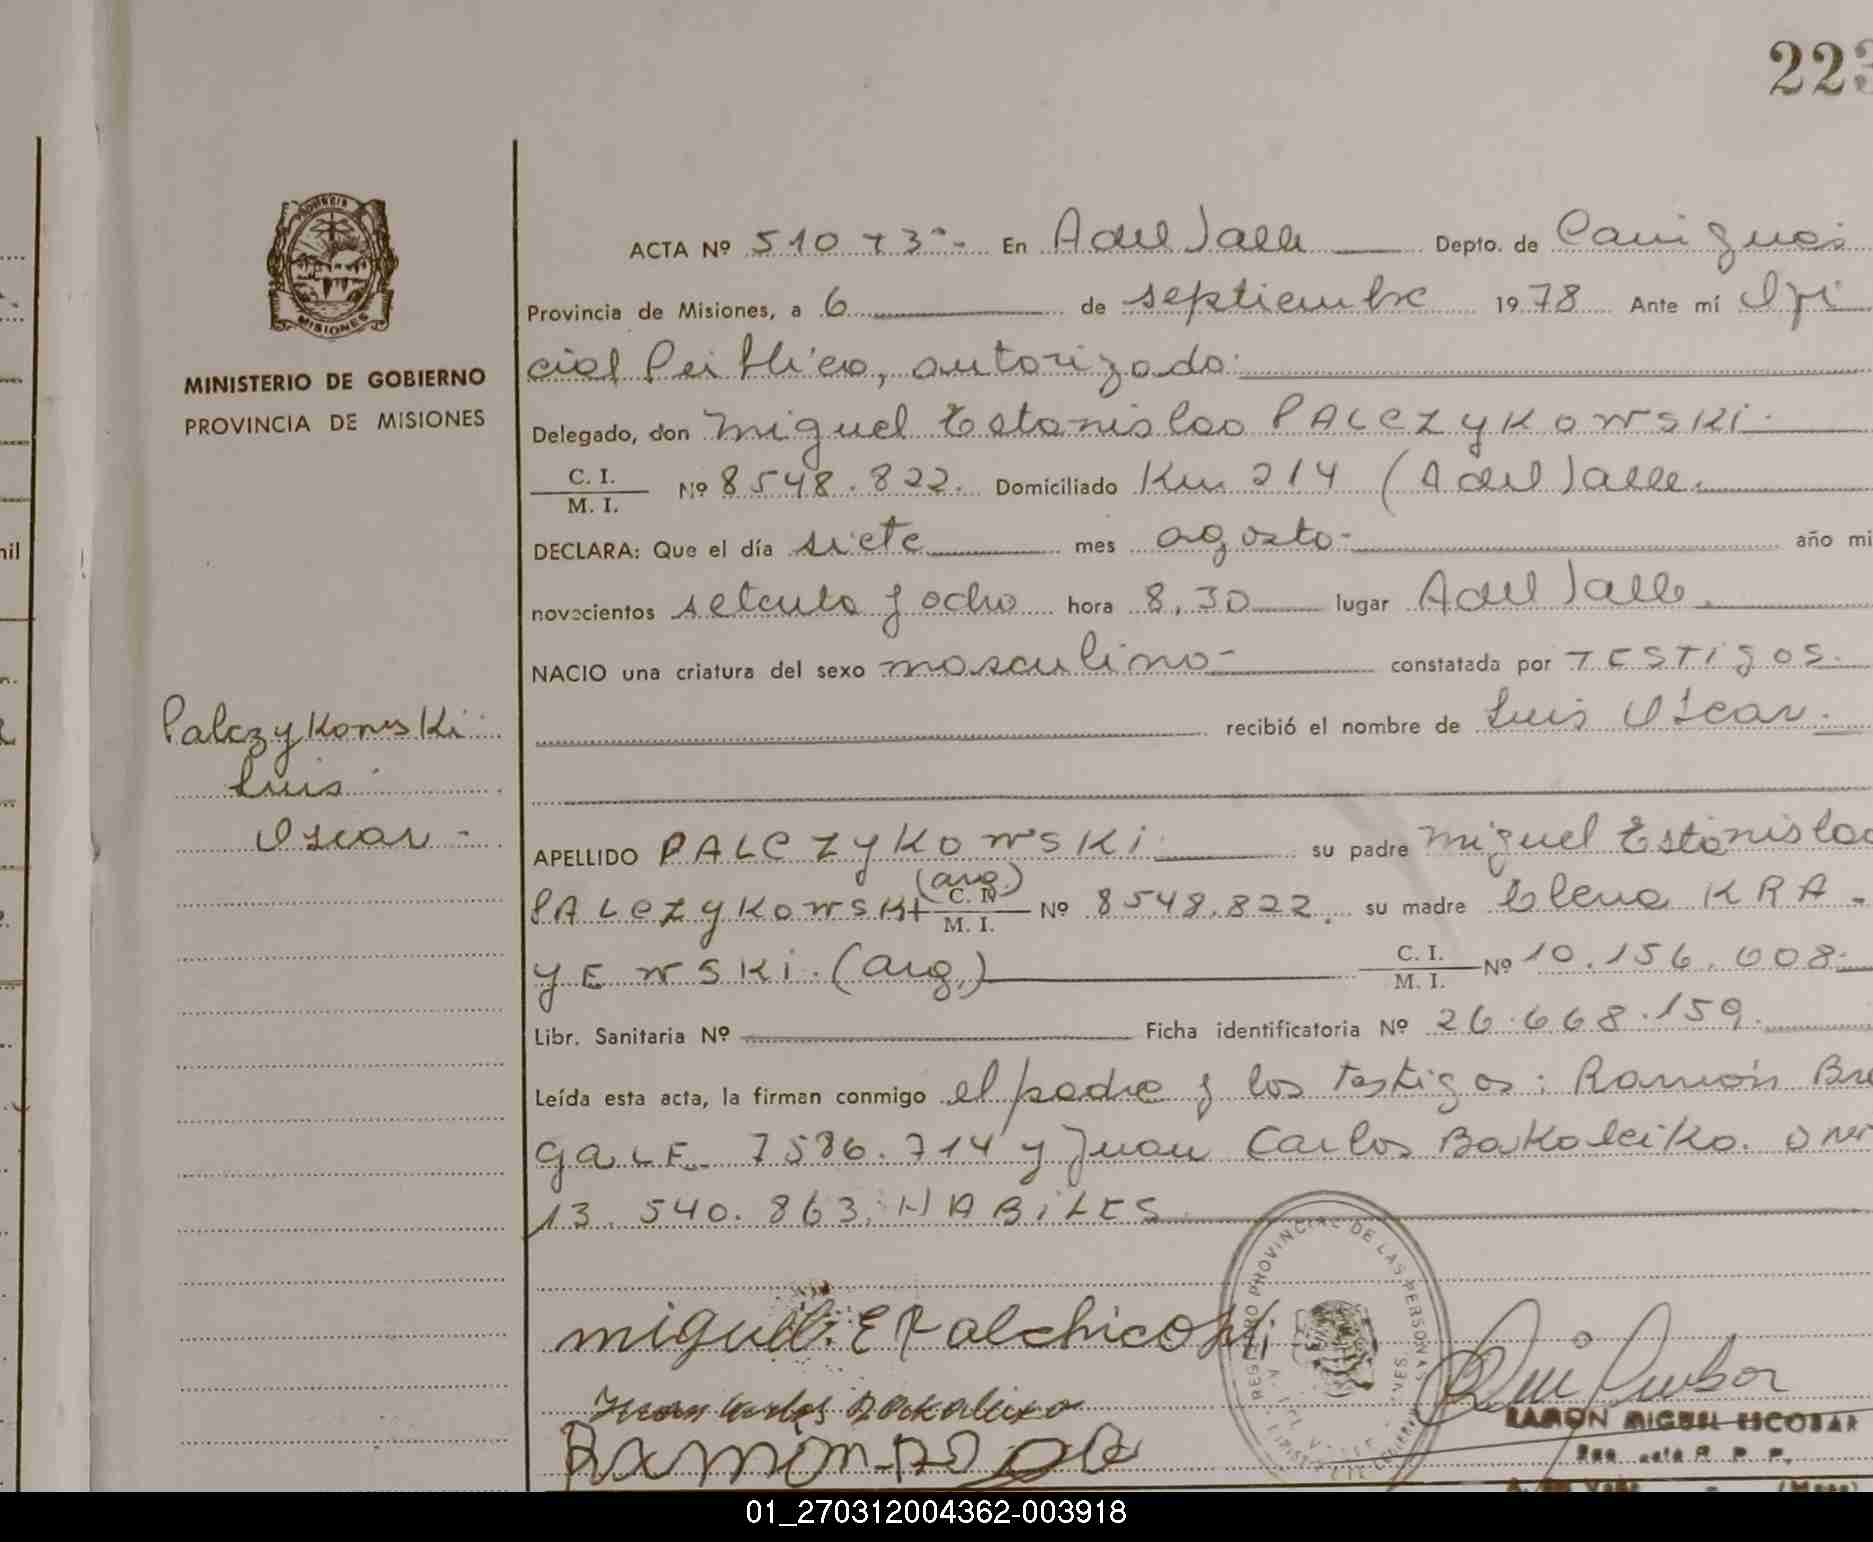 223
ACTA Nº 510 T 3º- En A del Valle Depto. de Cainguás
Provincia de Misiones, a 6 de septiembre 1978 Ante mí Ofi
cial Público, autorizado.
Delegado, don Miguel Estanislao PALCZYKOWSKI.
C. I.
M. I. Nº 8548.822. Domiciliado Km 214 (A del Valle.
DECLARA: Que el día siete mes agosto- año mi
novecientos setenta y ocho hora 8,30 lugar A del Valle.
NACIO una criatura del sexo masculino- constatada por TESTIGOS.
recibió el nombre de Luis Oscar.
APELLIDO PALCZYKOWSKI su padre Miguel Estanislao
PALCZYKOWSKI (arg) C. I. M. I. Nº 8548.822. su madre Elena KRA-
YEWSKI. (arg.) C. I. M. I. Nº 10.156.008-
Libr. Sanitaria Nº Ficha identificatoria Nº 26.668.159.
Leída esta acta, la firman conmigo el padre y los testigos: Ramón Bre
GALE 7586.714 y Juan Carlos Bakaleiko. DNI
13.540.863. HABILES
PROVINCIA
MISIONES
MINISTERIO DE GOBIERNO
PROVINCIA DE MISIONES
Palczykowski
Luis
Oscar -
nil
Miguel E Palchicoski
Juan Carlos Bakaleiko
Ramon
REGISTRO PROVINCIAL DE LAS PERSONAS
RAMON MIGUEL ESCOBAR
R. P. P.
A. del Valle (Mnes)
01_270312004362-003918